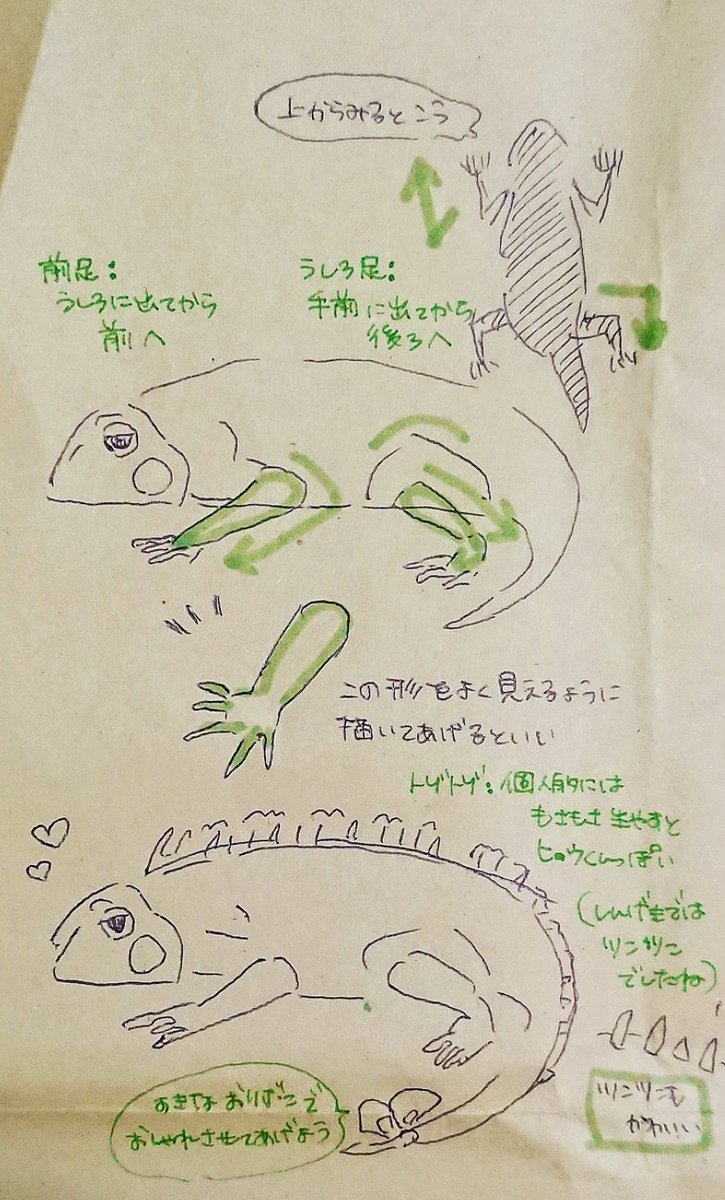 上からみるとこう
前足:
うしろに出てから
前へ
うしろ足:
手前に出てから
後ろへ
この形をよく見えるように
描いてあげるといい
トゲトゲ:個人的には
もさもさ生やすと
ヒョウくんっぽい
(しんげきでは
ツンツン
でしたね)
ツンツンも
かわいい
おきな おりぼんで
おしゃれさせてあげよう